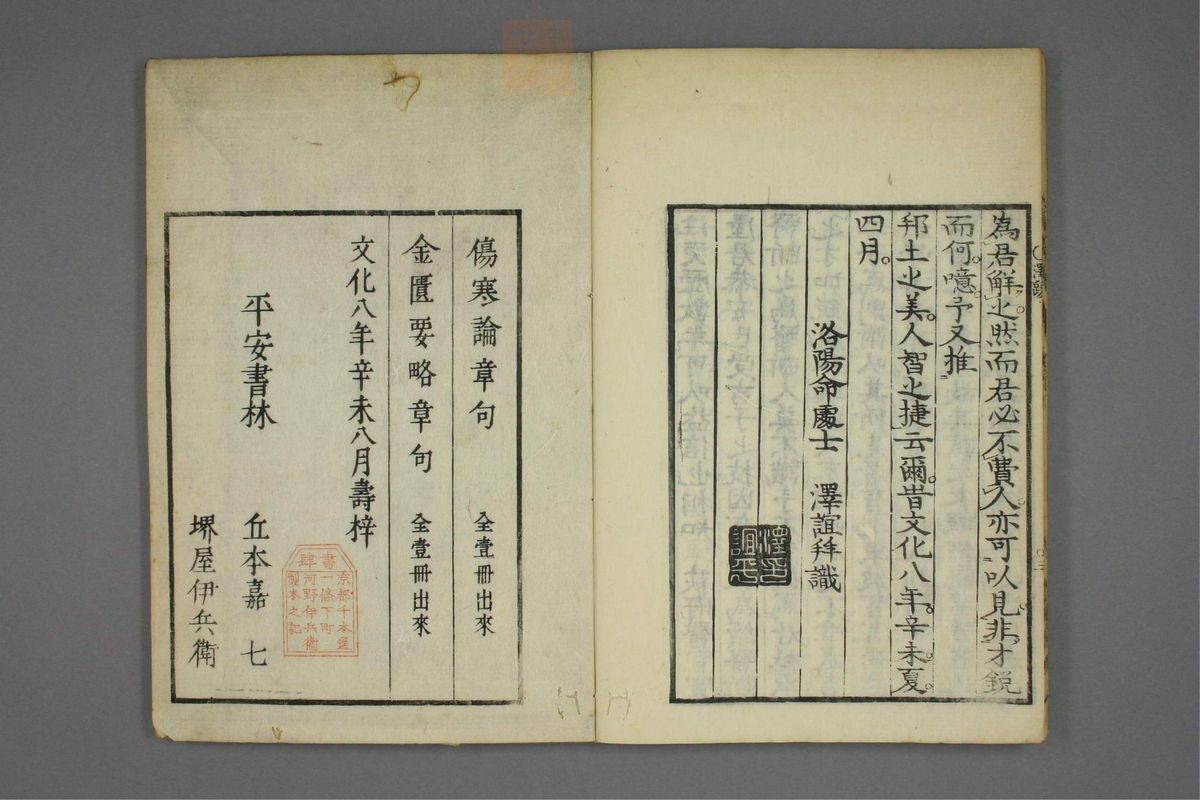 為君解之然而君必不費人亦可以見非才鋭
而何噫予又推
邦土之美人智之捷云爾昔文化八年辛未夏
四月
洛陽命處士 澤誼拜識
傷寒論章句 全壹冊出來
金匱要略章句 全壹冊出來
文化八年辛未八月壽梓
平安書林 丘本嘉七
堺屋伊兵衛
書肆
京都千本通
一條下町
河野伊兵衞
製本之記